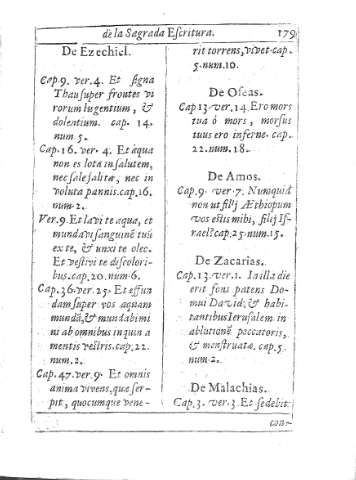 de la Sagrada Escritura. 179
De Ezechiel.
Cap.9. ver.4. Et signa
Thau super frontes vi
rorum lugentium, &
dolentium. cap. 14.
num.5.
Cap.16. ver.4. Et aqua
non es lota in salutem,
nec sale salita, nec in
voluta pannis.cap.16.
num.2.
Ver.9.Et lavi te aqua, et
mundavi sanguinē tuū
ex te, & unxi te oleo.
Et vestivi te discolori-
bus.cap.20.num.6.
Cap.36.ver.25. Et effun
dam super vos aquam
mundā, & mundabimi
ni ab omnibus inquina
mentis vestris.cap.22.
num.2.
Cap.47.ver.9. Et omnis
anima vivens,quæ ser-
pit, quocumque vene-
rit torrens, vivet.cap.
5.num.10.
De Oseas.
Cap 13.ver.14.Ero mors
tua ò mors, morsus
tuus ero inferne. cap.
22.num.18.
De Amos.
Cap.9. ver.7. Numquid
non ut filij Æthiopum
vos estis mihi, filij Is-
rael?cap.25.num.15.
De Zacarias.
Cap.13.ver.1. In illa die
erit fons patens Do-
mui David, & habi-
tantibus Ierusalem in
ablutionē peccatoris,
& menstruatæ. cap.5.
num.2.
De Malachias.
Cap.3. ver.3.Et sedebit
con-